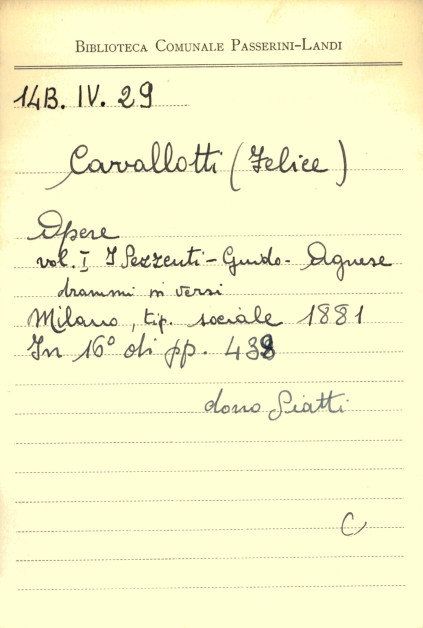 BIBLIOTECA COMUNALE PASSERINI-LANDI
14B. IV. 29
Cavallotti (Felice)
Opere
vol. I I Pezzenti - Guido - Agnese
drammi in versi
Milano, tip. sociale 1881
In 16° di pp. 438
dono
C